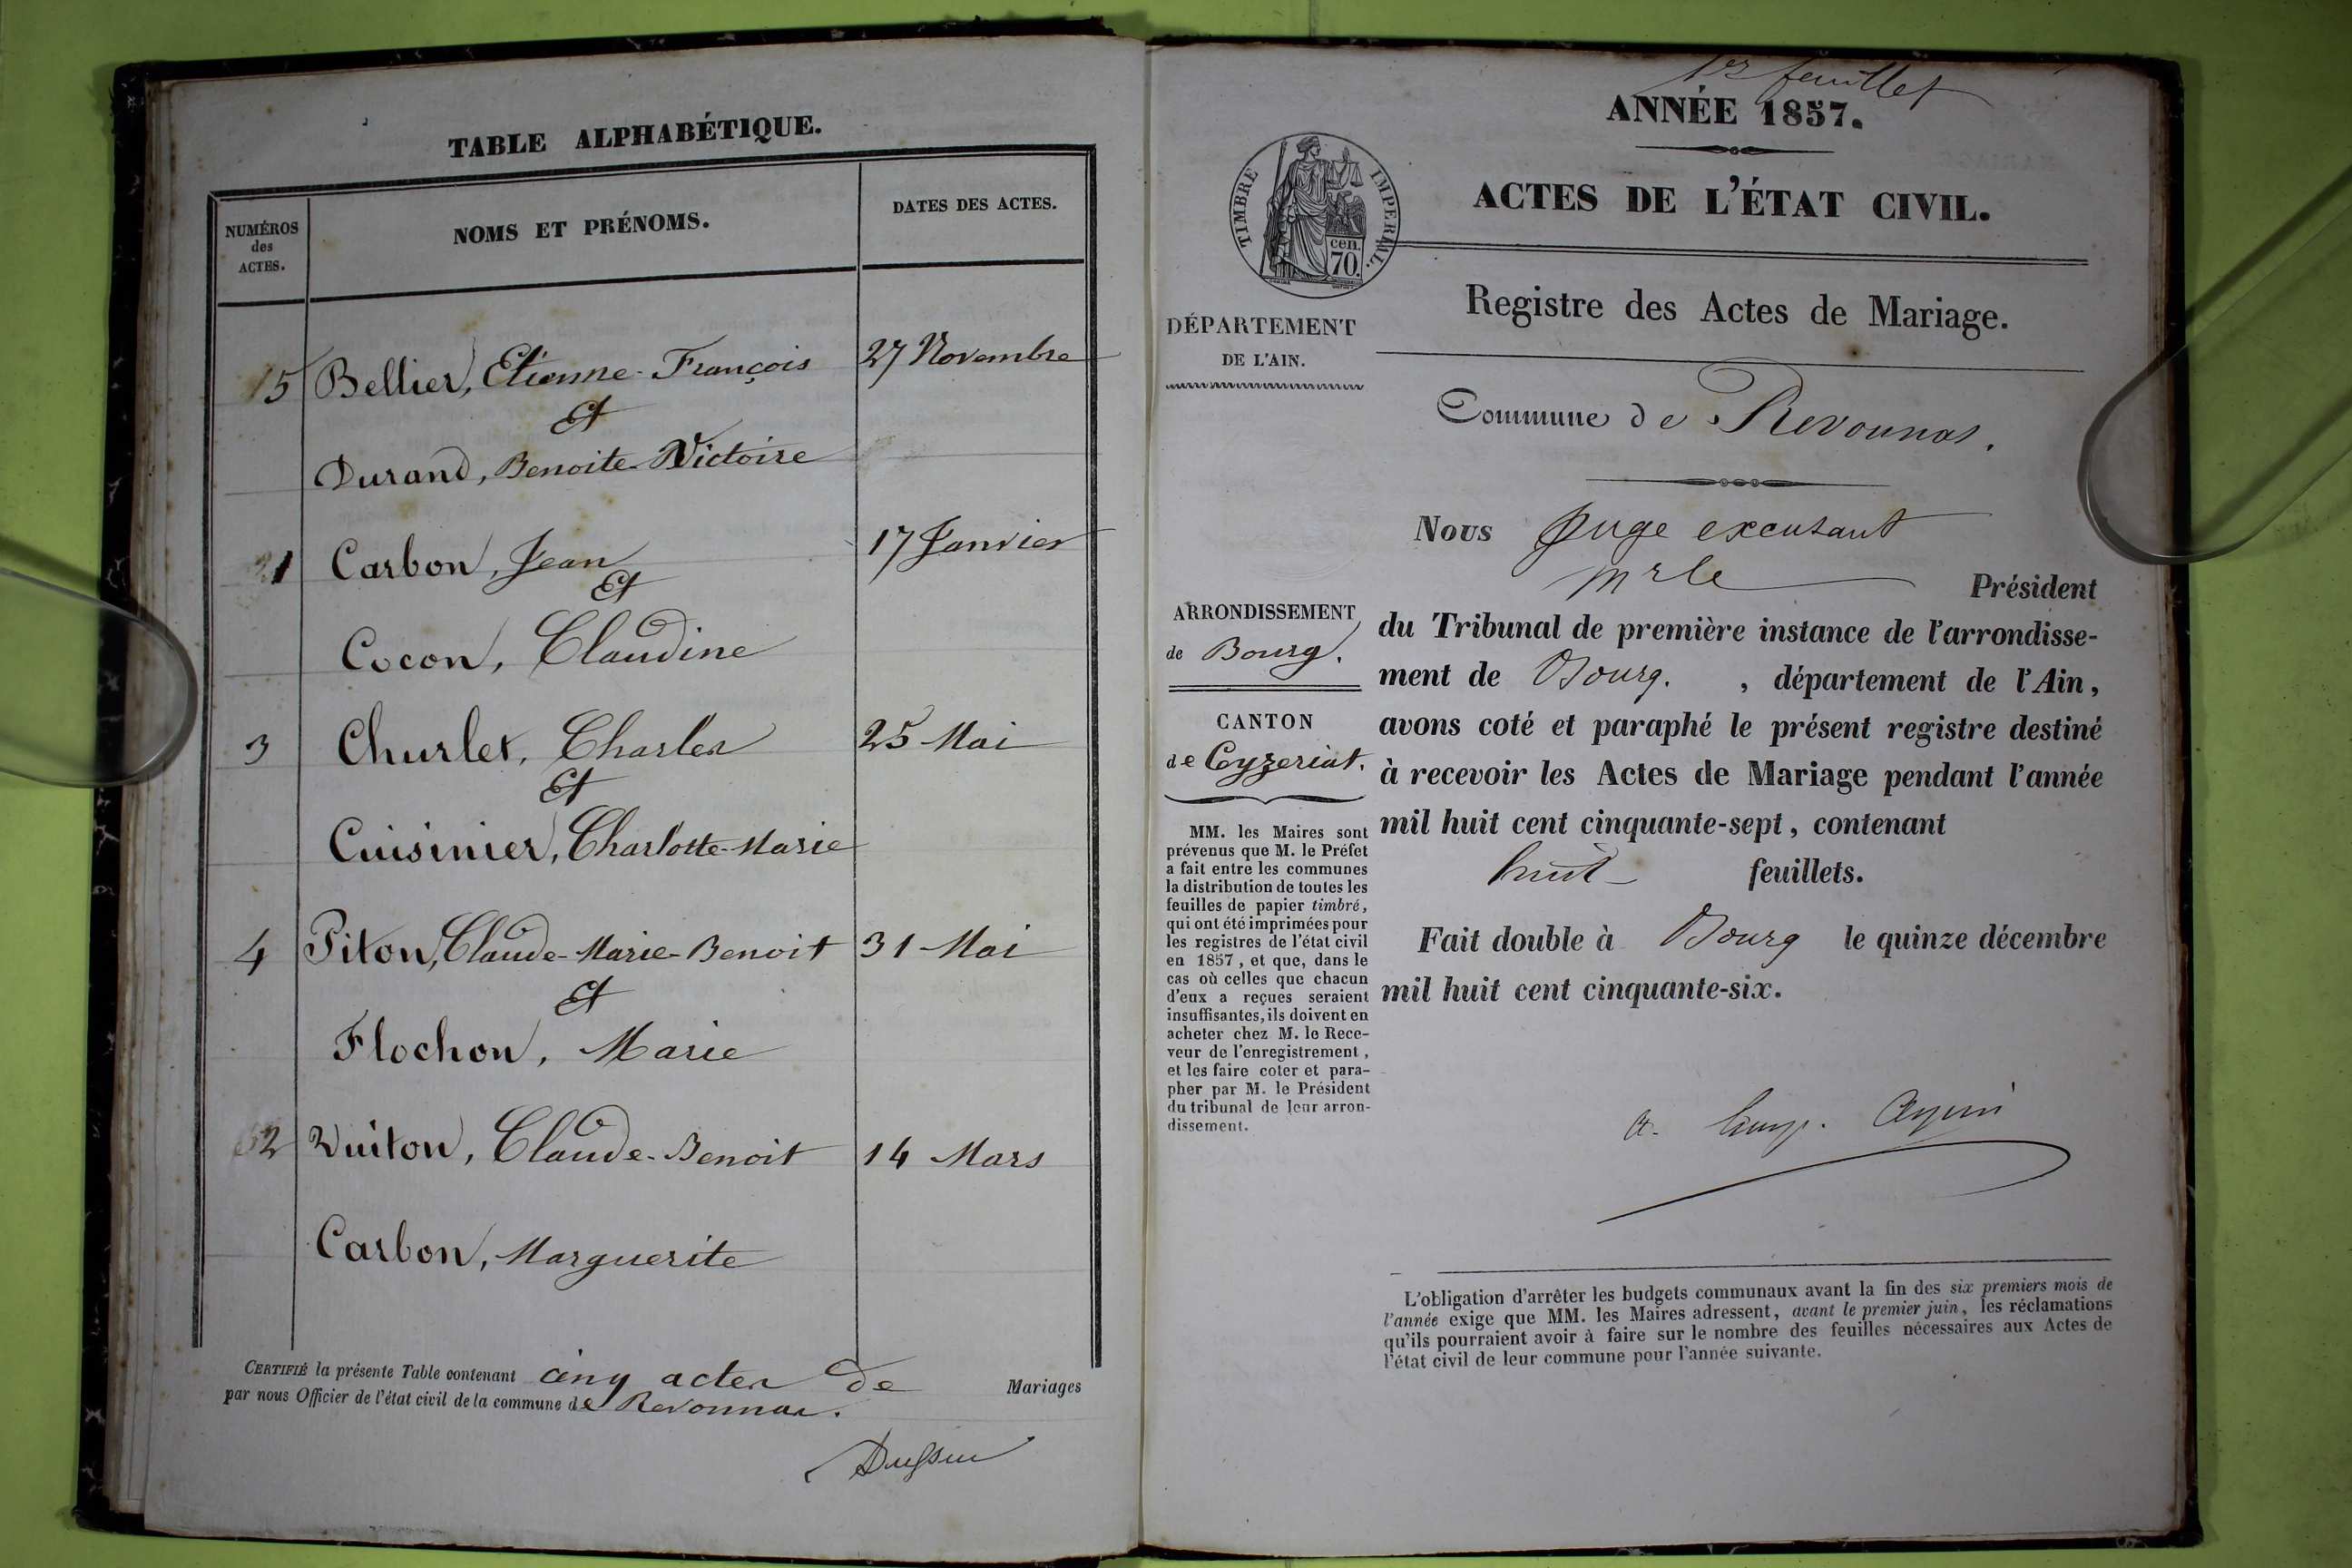 TABLE ALPHABÉTIQUE.
NUMÉROS
des
ACTES.
NOMS ET PRÉNOMS.
DATES DES ACTES.
5 Bellier, Etienne-François 27 Novembre
Et
Durand, Benoite-Victoire
1 Carbon, Jean 17 Janvier
Et
Cocon, Claudine
3 Churlet, Charles 25 Mai
Et
Cuisinier, Charlotte-Marie
4 Piton, Claude-Marie-Benoit 31 Mai
Et
Flochon, Marie
2 Vuiton, Claude-Benoit 14 Mars
Carbon, Marguerite
CERTIFIÉ la présente Table contenant cinq actes de Mariages
par nous Officier de l'état civil de la commune de Revonnas.
1er feuillet
ANNÉE 1857.
ACTES DE L'ÉTAT CIVIL.
TIMBRE IMPERIAL.
cen.
70.
Registre des Actes de Mariage.
DÉPARTEMENT
DE L'AIN.
Commune de Revonnas.
Nous Juge
Président
du Tribunal de première instance de l'arrondisse-
ment de Bourg. , département de l'Ain,
avons coté et paraphé le présent registre destiné
à recevoir les Actes de Mariage pendant l'année
mil huit cent cinquante-sept, contenant
huit feuillets.
Fait double à Bourg le quinze décembre
mil huit cent cinquante-six.
ARRONDISSEMENT
de Bourg.
CANTON
de Ceyzeriat.
MM. les Maires sont
prévenus que M. le Préfet
a fait entre les communes
la distribution de toutes les
feuilles de papier timbré,
qui ont été imprimées pour
les registres de l'état civil
en 1857, et que, dans le
cas où celles que chacun
d'eux a reçues seraient
insuffisantes, ils doivent en
acheter chez M. le Rece-
veur de l'enregistrement,
et les faire coter et para-
pher par M. le Président
du tribunal de leur arron-
dissement.
L'obligation d'arrêter les budgets communaux avant la fin des six premiers mois de
l'année exige que MM. les Maires adressent, avant le premier juin, les réclamations
qu'ils pourraient avoir à faire sur le nombre des feuilles nécessaires aux Actes de
l'état civil de leur commune pour l'année suivante.